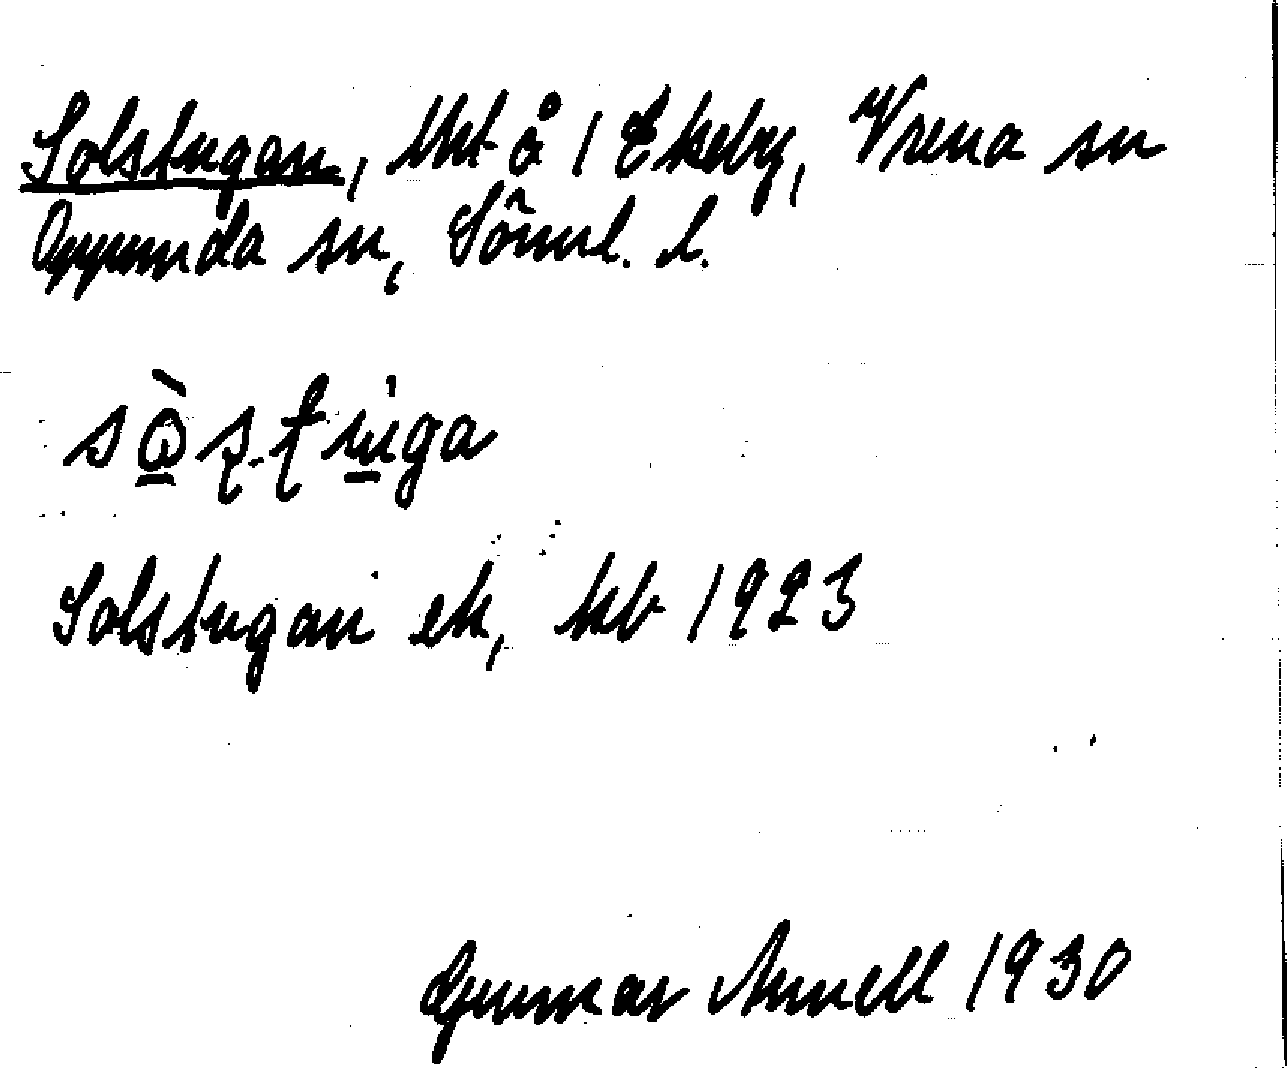 Solstugan, lht å 1 Ekeby, Vrena sn
Oppunda sn, Söml. l.
sò̱ʂʈu̱ga
Solstugan ek, kb 1923
Gunnar Arnell 1930